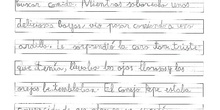 buscar comida. Mientras saboreaba unas
deliciosas bayas, vio pasar corriendo a su
ardilla. Le sorprendió la cara tan triste
que tenía, llevaba los ojos llorosos y las
orejas le temblaban. El conejo Pepe estaba